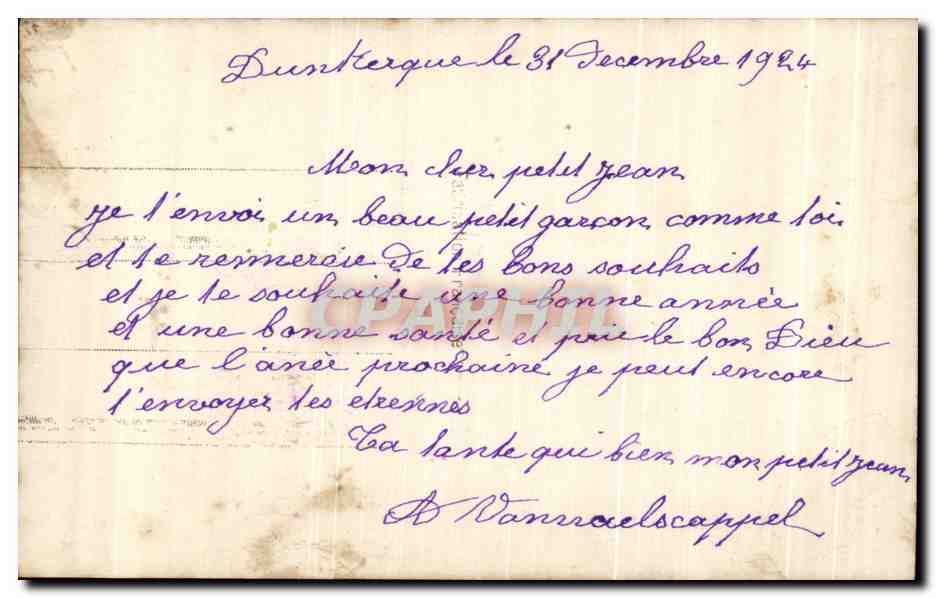 Dunkerque le 31 Decembre 1924
Mon cher petit Jean
Je t'envoi un beau petit garçon comme toi
et te remercie de tes bons souhaits
et je te souhaite une bonne année
et une bonne santé et prie le bon Dieu
que l'anée prochaine je peut encore
t'envoyer tes etrennes
Ta tante qui bien mon petit Jean
A
CPAPHIL